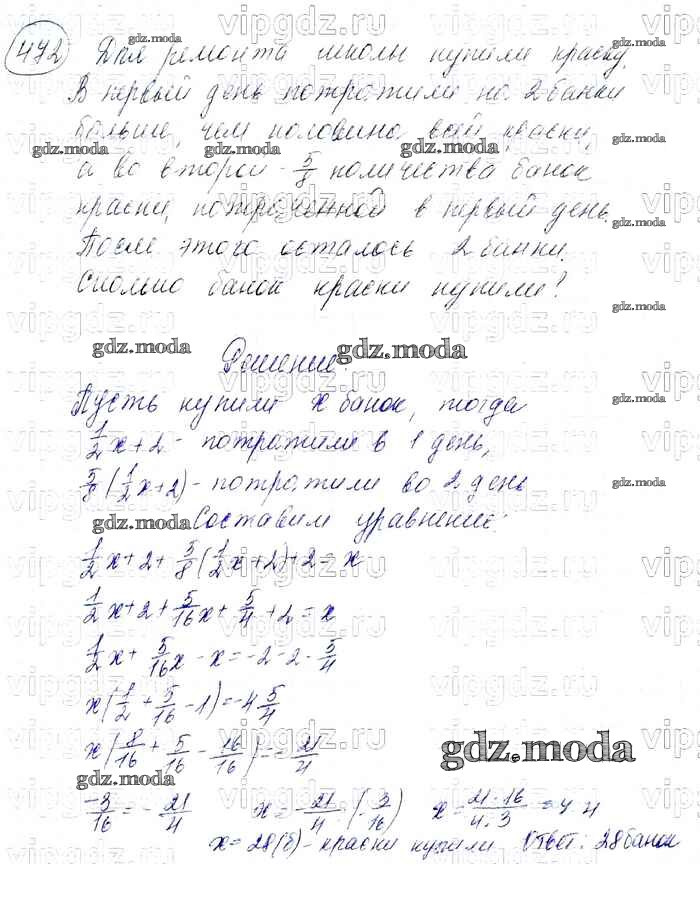 472 Для ремонта школы купили краску.
В первый день потратили на 2 банки
больше, чем половина всей краски,
а во второй - 5/8 количества банок
краски, потраченной в первый день.
После этого осталось 2 банки.
Сколько банок краски купили?
Решение:
Пусть купили x банок, тогда
1/2 x + 2 - потратили в 1 день,
5/8 (1/2 x + 2) - потратили во 2 день
Составим уравнение:
1/2 x + 2 + 5/8 (1/2 x + 2) + 2 = x
1/2 x + 2 + 5/16 x + 5/4 + 2 = x
1/2 x + 5/16 x - x = -2 - 2 - 5/4
x (1/2 + 5/16 - 1) = -4 5/4
x (8/16 + 5/16 - 16/16) = - 21/4
-3/16 = - 21/4 x = - 21/4 : (- 3/16) x = 21·16/4·3 = 7·4
x = 28 (б) - краски купили Ответ: 28 банок
vipgdz.ru
gdz.moda